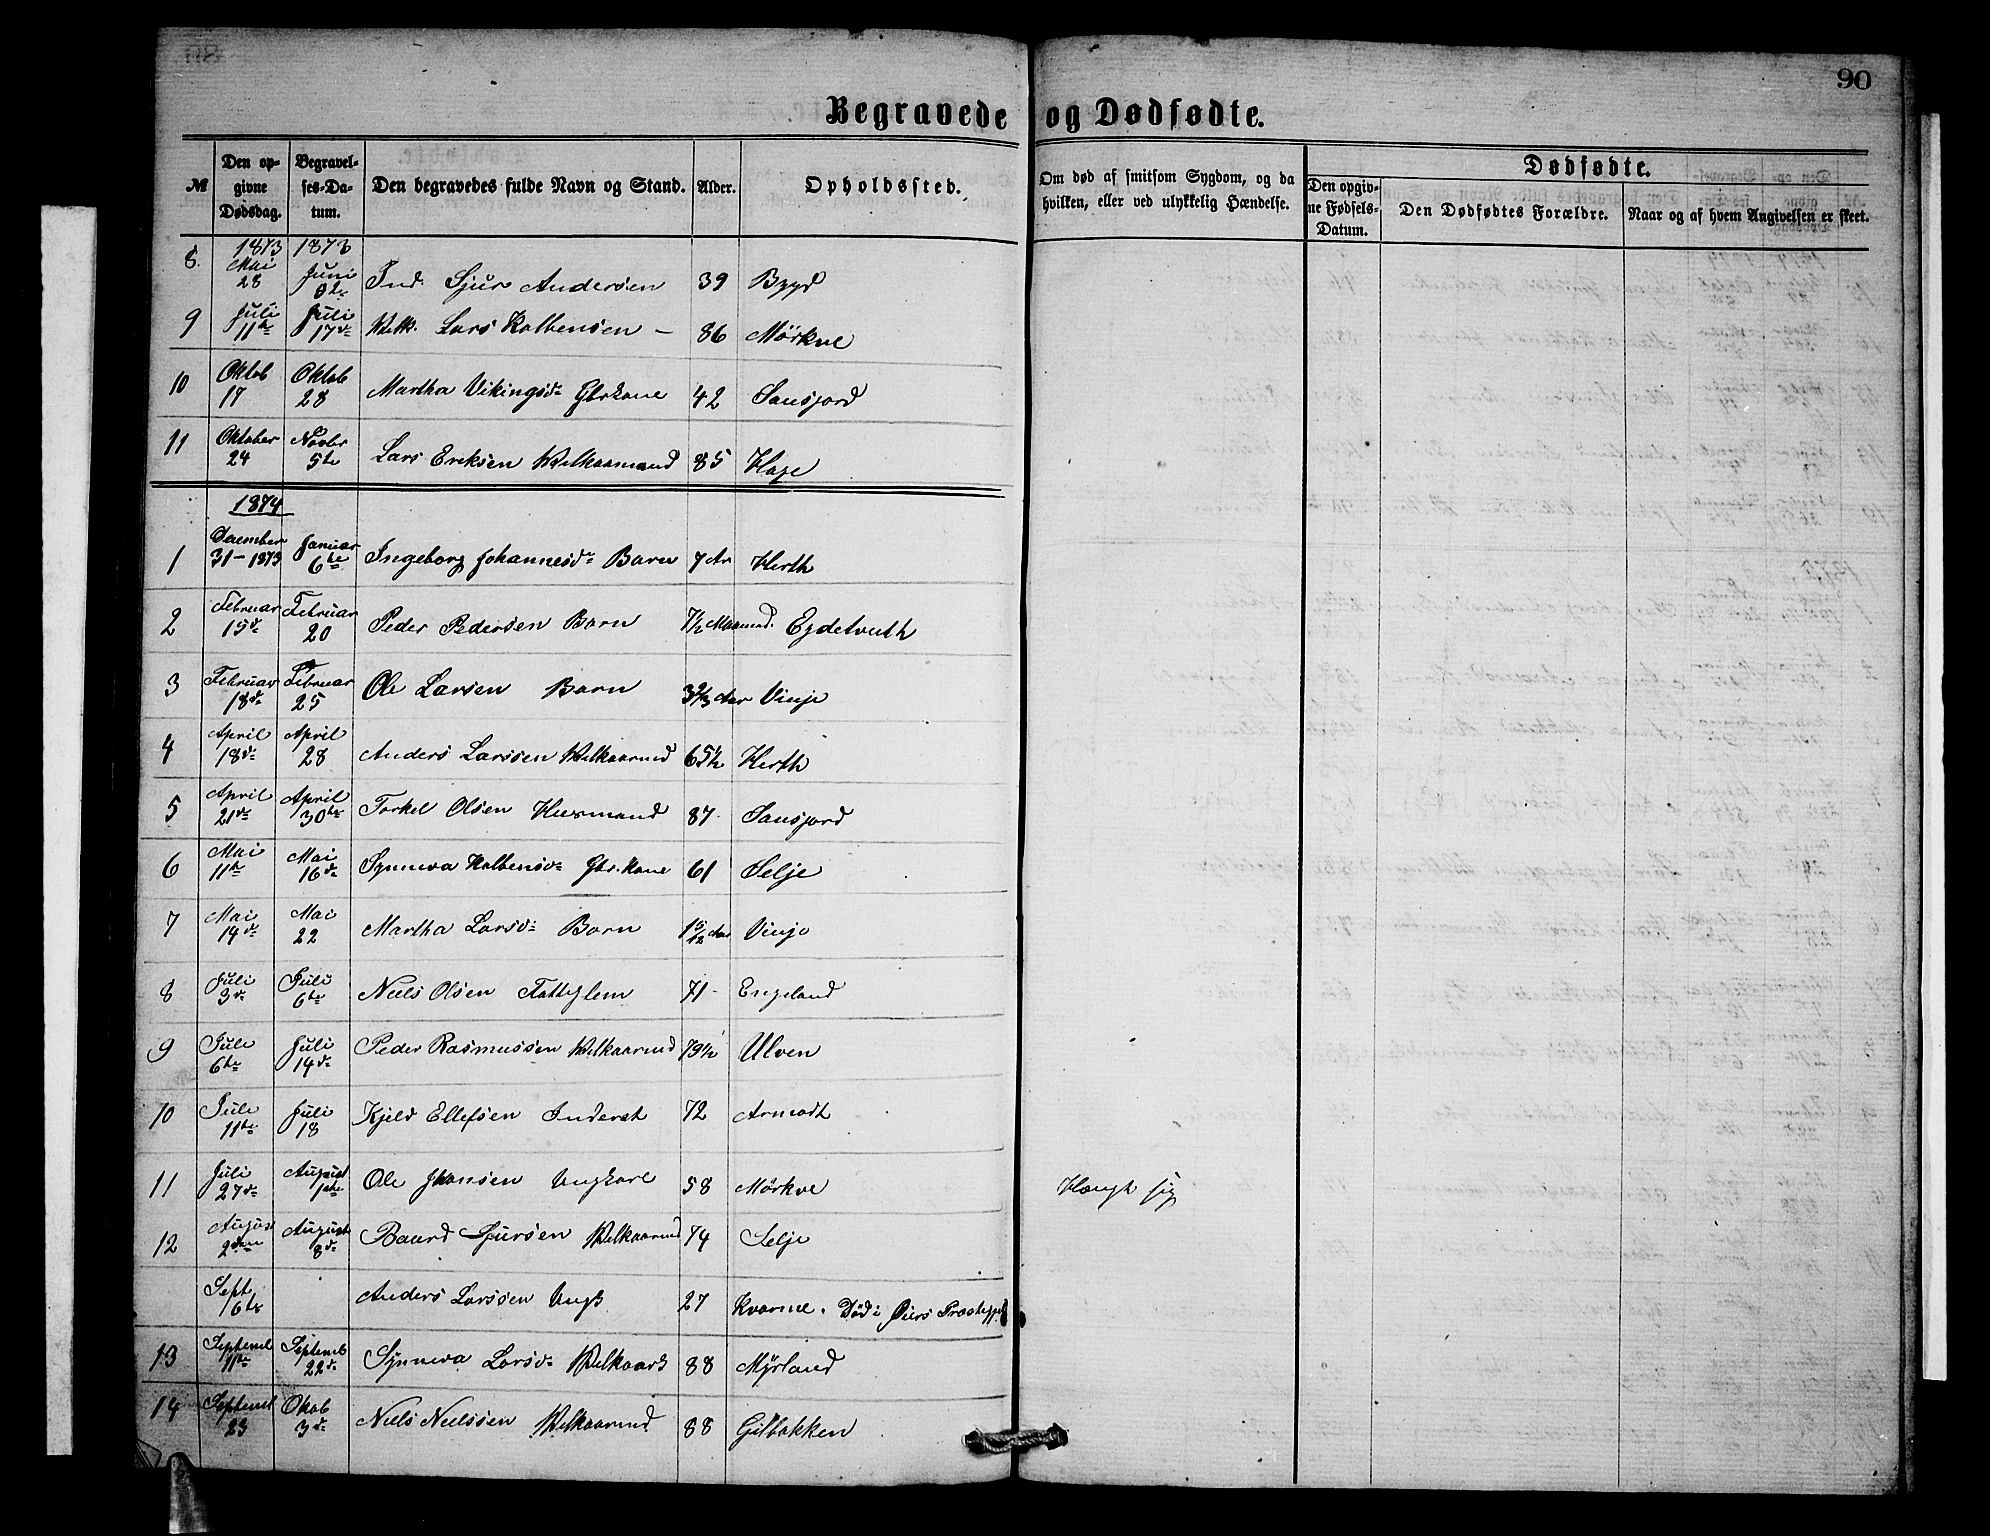 90
Begravede og Dødfødte.
№ Den opgivne Dødsdag. Begravelses-Datum. Den begravedes fulde Navn og Stand. Alder. Opholdssted. Om død af smitsom Sygdom, og da hvilken, eller ved ulykkelig Hændelse. Dødfødte. Den opgivne Fødsels-Datum. Den Dødfødtes Forældre. Naar og af hvem Angivelsen er skeet.
1873 1873
8 Mai 28 Juni Ind. Sjur Andersen 39 Bygd
9 Juli 11te Juli 17de Velk. Lars Kolbensen – 86 Mörkve
10 Oktob 17 Oktob 28 Martha Vikingsd. Gbrkone 42 Sausjord
11 Oktober 24 Novbr 5te Lars Eriksen Velkaarmand 85 Hage
1874
1 December 31–1873 Januar 6te Ingeborg Johannesd. Barn 7 Ar Herth
2 Februar 15de Februar 20 Peder Pedersen Barn 7½ Maaned. Egdetveith
3 Februar 18de Februar 25 Ole Larsen Barn 3⅔ Aar Vinje
4 April 18de April 28 Anders Larssen Velkaarmd 65½ Herth
5 April 21de April 30te Torkel Olsen Husmand 87 Sausjord
6 Mai 11te Mai 16de Synneva Kolbensd. Gbr. Kone 61 Selje
7 Mai 14de Mai 22 Martha Larsd. Barn 1 5/12 Aar Vinje
8 Juli 3de Juli 6te Niels Olsen Fattiglem 71 Engeland
9 Juli 6te Juli 14de Peder Rasmussen Velkaarmd 79½ Ulven
10 Juli 11te Juli 18 Kjeld Ellefsen Inderst 72 Armodt
11 Juli 27de August 1ste Ole Jhansen Ungkarl 58 Mörkve Hængt sig
12 August 2den August 8de Baard Sjursen Velkaarmd 74 Selje
Sept 16te Anders Larssen Ungk 27 Kvarme. Död i Øiers Præstegjel
13 Septemb 11te Septemb 22de Synneva Larsd. Velkaark 88 Myrland
14 Septemb 23 Oktob 3de Niels Nielssen Velkaarmd. 88 Gilbakken